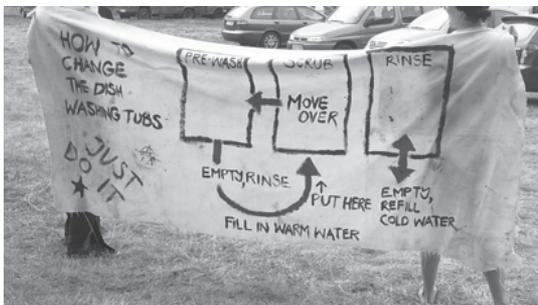 HOW TO
CHANGE
THE DISH
WASHING TUBS
JUST
DO IT
PRE-WASH
SCRUB
RINSE
MOVE
OVER
EMPTY, RINSE
PUT HERE
FILL IN WARM WATER
EMPTY,
REFILL
COLD WATER